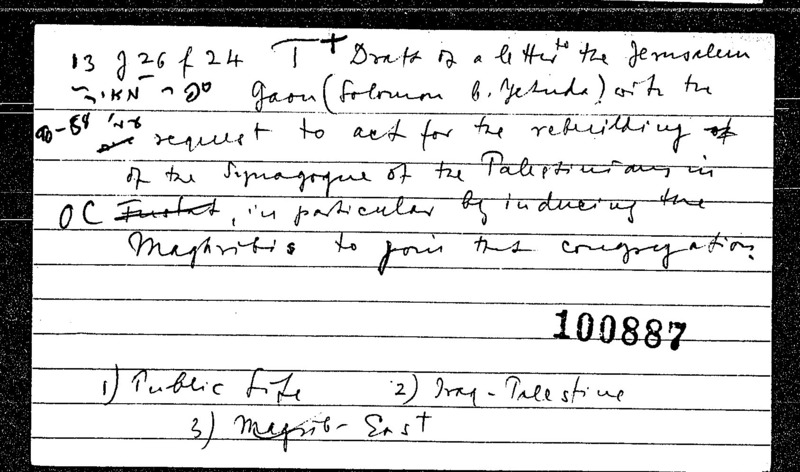 13 J 26 f 24 T + Draft of a letter to the Jerusalem
Gaon (Solomon b. Yehuda) with the
request to act for the rebuilding
of the Synagogue of the Palestinians in
OC Fustat, in particular by inducing the
Maghribis to join that congregation.
100887
1) Public Life 2) Iraq - Palestine
3) Magrib - East